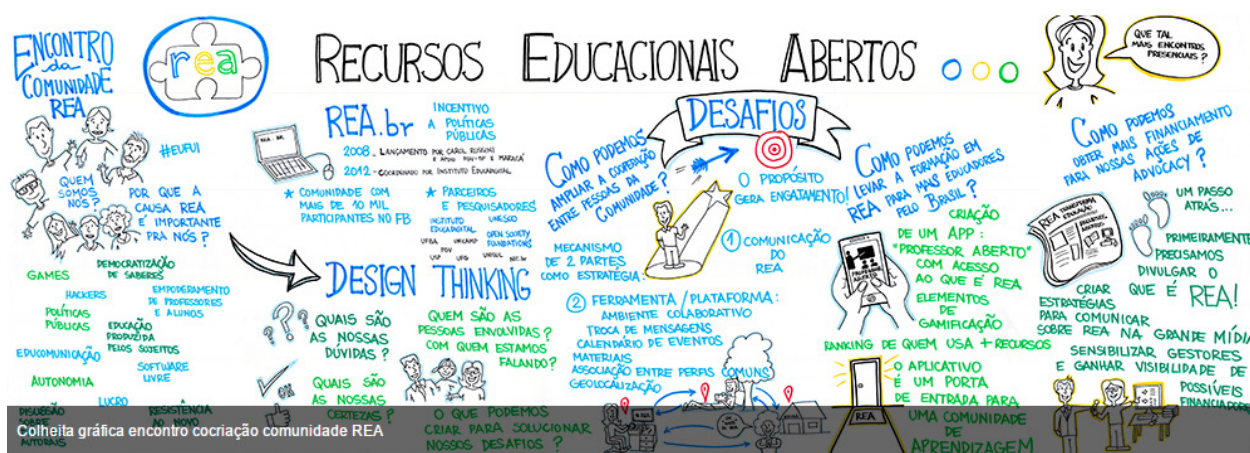 ENCONTRO
da
COMUNIDADE
REA
rea
RECURSOS EDUCACIONAIS ABERTOS
QUE TAL
MAIS ENCONTROS
PRESENCIAIS?
#EUFUI
QUEM
SOMOS
NÓS?
POR QUE A
CAUSA REA
É IMPORTANTE
PRA NÓS?
GAMES
DEMOCRATIZAÇÃO
DE SABERES
HACKERS
EMPODERAMENTO
DE PROFESSORES
E ALUNOS
POLÍTICAS
PÚBLICAS
EDUCAÇÃO
PRODUZIDA
PELOS SUJEITOS
EDUCOMUNICAÇÃO
SOFTWARE
LIVRE
AUTONOMIA
LUCRO
DISCUSSÃO
SOBRE
AUTORAIS
RESISTÊNCIA
AO NOVO
REA.BR
REA.br
INCENTIVO
A POLÍTICAS
PÚBLICAS
2008 - LANÇAMENTO POR CAROL ROSSINI
E APOIO FGV-SP E MARACÁ
2012 - COORDENADO POR INSTITUTO EDUCADIGITAL
COMUNIDADE COM
MAIS DE 10 MIL
PARTICIPANTES NO FB
PARCEIROS
E PESQUISADORES
INSTITUTO
EDUCADIGITAL
UNESCO
OPEN SOCIETY
FOUNDATIONS
UFBA UNICAMP
FGV
USP UFG UNISUL NIC.br
DESIGN THINKING
QUAIS SÃO
AS NOSSAS
DÚVIDAS?
OK
QUAIS SÃO
AS NOSSAS
CERTEZAS?
QUEM SÃO AS
PESSOAS ENVOLVIDAS?
COM QUEM ESTAMOS
FALANDO?
O QUE PODEMOS
CRIAR PARA SOLUCIONAR
NOSSOS DESAFIOS?
DESAFIOS
COMO PODEMOS
AMPLIAR A COOPERAÇÃO
ENTRE PESSOAS DA
COMUNIDADE?
O PROPÓSITO
GERA ENGAJAMENTO!
MECANISMO
DE 2 PARTES
COMO ESTRATÉGIA:
1 COMUNICAÇÃO
DO
REA
2 FERRAMENTA/PLATAFORMA:
AMBIENTE COLABORATIVO
TROCA DE MENSAGENS
CALENDÁRIO DE EVENTOS
MATERIAIS
ASSOCIAÇÃO ENTRE PERFIS COMUNS
GEOLOCALIZAÇÃO
COMO PODEMOS
LEVAR A FORMAÇÃO EM
REA PARA MAIS EDUCADORES
PELO BRASIL?
CRIAÇÃO
DE UM APP:
"PROFESSOR ABERTO"
COM ACESSO
AO QUE É REA
ELEMENTOS
DE
GAMIFICAÇÃO
PROFESSOR
ABERTO
RANKING DE QUEM USA + RECURSOS
REA
O APLICATIVO
É UM PORTA
DE ENTRADA PARA
UMA COMUNIDADE
DE
APRENDIZAGEM
COMO PODEMOS
OBTER MAIS FINANCIAMENTO
PARA NOSSAS AÇÕES DE
ADVOCACY?
REA TRANSFORMA
EDUCAÇÃO
RECURSOS
ABERTOS
UM PASSO
ATRÁS...
PRIMEIRAMENTE
PRECISAMOS
DIVULGAR O
QUE É REA!
CRIAR
ESTRATÉGIAS
PARA COMUNICAR
SOBRE REA NA GRANDE MÍDIA
SENSIBILIZAR GESTORES
E GANHAR VISIBILIDADE DE
POSSÍVEIS
FINANCIADORES
Colheita gráfica encontro cocriação comunidade REA